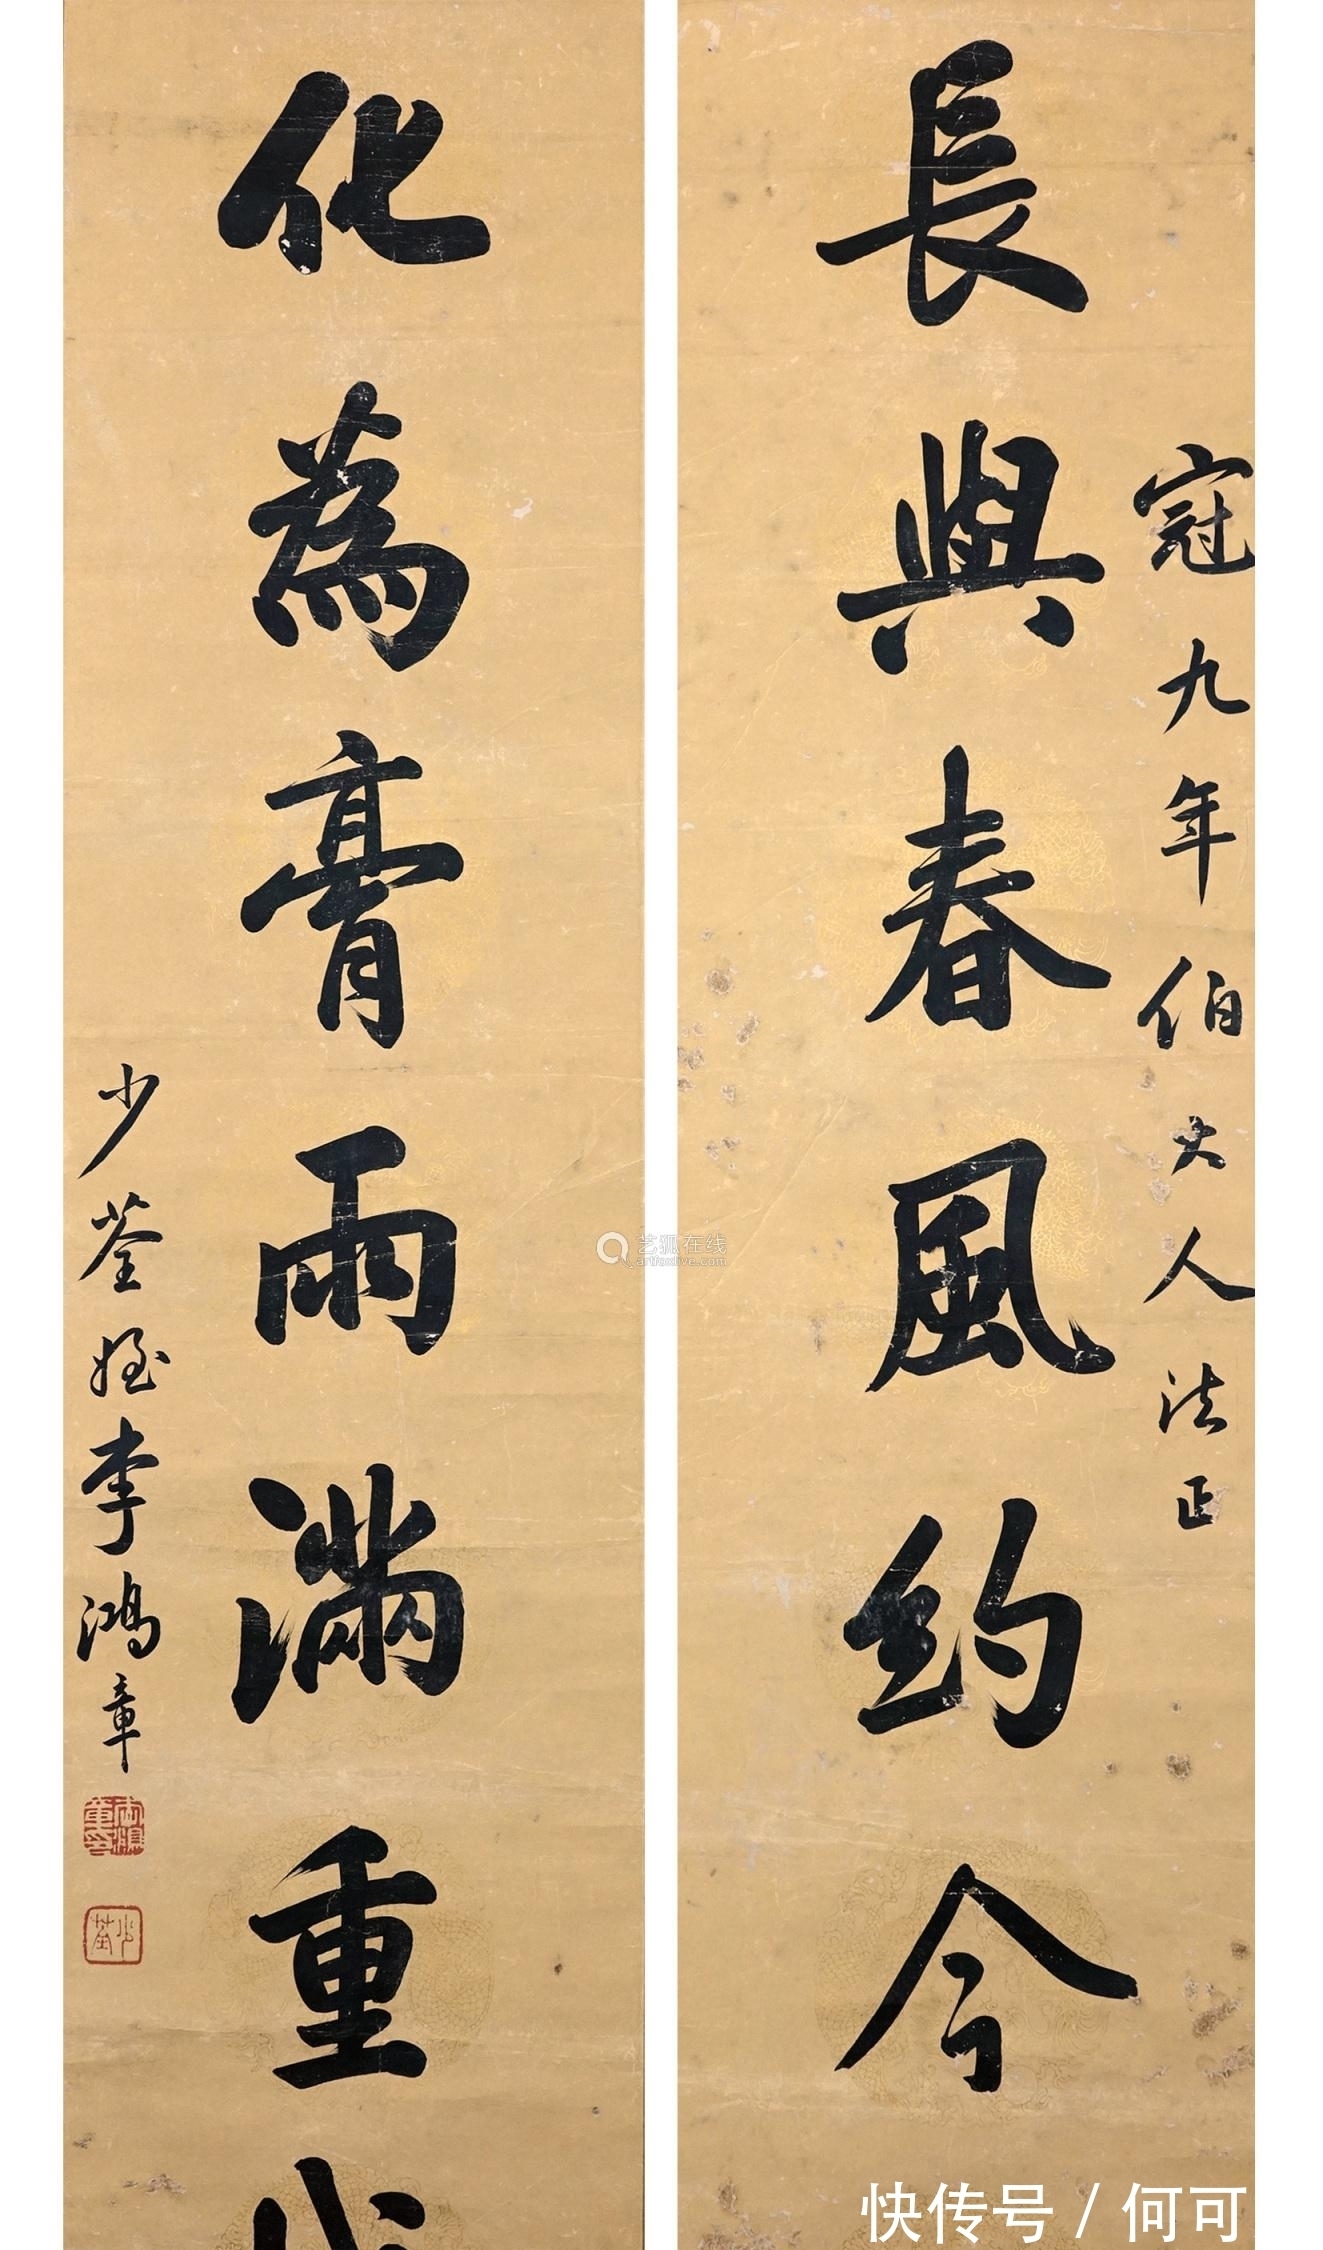 長與春風約今
冠九年伯大人法正
化為膏雨滿重
少荃姪李鴻章
少荃
艺狐在线
artfoxlive.com
快传号 / 何可